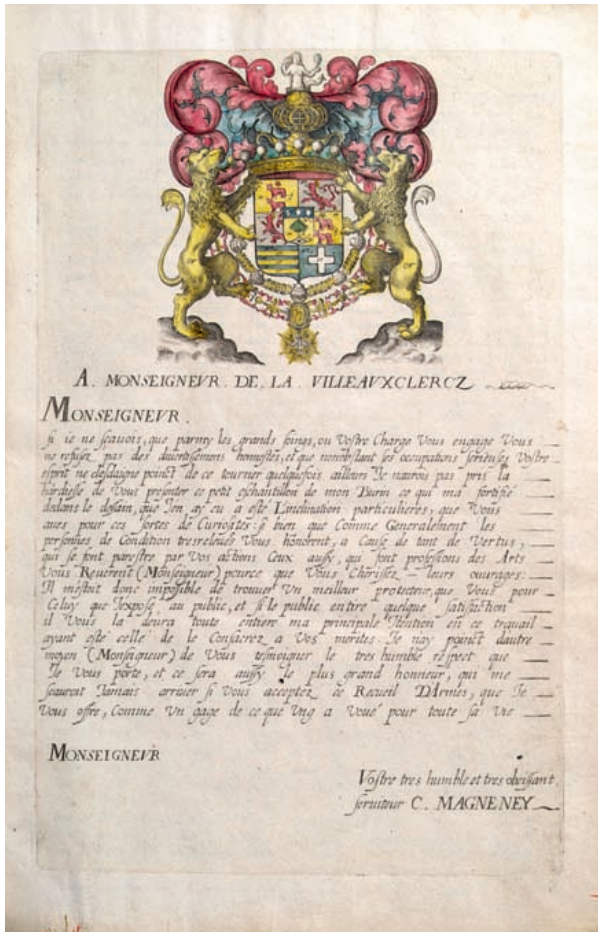 A. MONSEIGNEVR. DE. LA. VILLEAVXCLERCZ
MONSEIGNEVR.
si ie ne sçauois, que parmy les grands soings, ou Vostre Charge Vous engage Vous
ne refusez pas des diuertissemens honnestes, et que nonobstant les occupations serieuses Vostre
esprit ne desdaigne poinct de ce tourner quelquefois ailleurs Je n'aurois pas pris la
hardiesse de Vous presenter ce petit eschantillon de mon Burin ce qui ma fortifié
dedans le dessain, que J'en ay eu a esté L'inclination particulieres, que Vous
aues pour ces sortes de Curiosités: si bien que Comme Generalement les
personnes de Condition tresreleuée Vous honorent, a Cause de tant de Vertus,
qui se font parestre par Vos actions Ceux aussy, qui font professions des Arts
Vous Reuerent (Monseigneur) pource que Vous Cherissez leurs ouurages:
Il m'estoit donc impossible de trouuer Vn meilleur protecteur, que Vous pour
Celuy que J'expose au public, et si le public en tire quelque satisfaction
il Vous la deura toute entiere ma principale Jtention en ce trauail
ayant esté celle de le Consacrez a Vos merites. Je nay poinct dautre
moyen (Monseigneur) de Vous tesmoigner le tres humble respect que
Je Vous porte, et ce sera aussy le plus grand honneur, qui me
scauroit Jamais arriuer si Vous acceptez ce Recueil D'Armes, que Je
Vous offre, Comme Vn gage de ce que Vng a Voué pour toute sa Vie
MONSEIGNEVR
Vostre tres humble et tres obeissant
seruiteur C. MAGNENEY